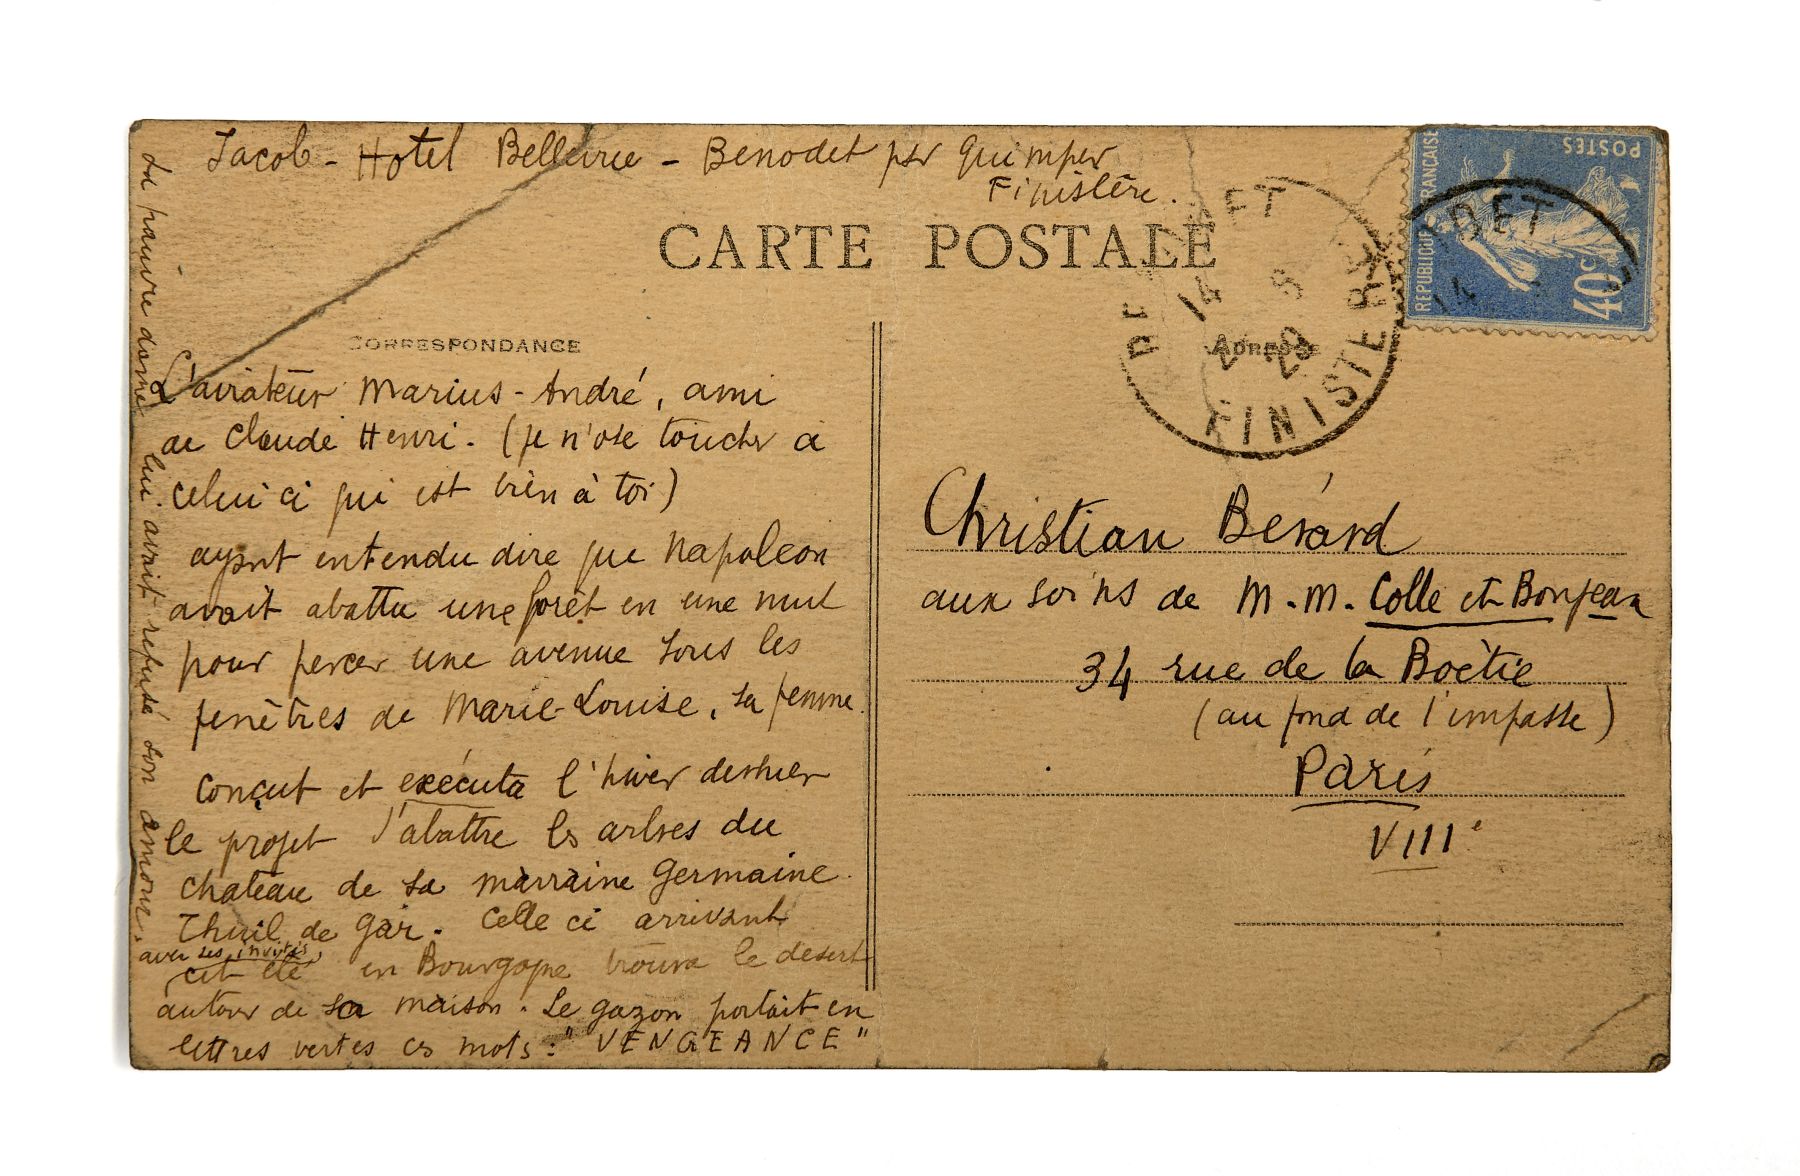 Jacob - Hotel Bellevue - Benodet par Quimper
Finistère.
CARTE POSTALE
REPUBLIQUE FRANÇAISE
POSTES
40c
FINISTERE
CORRESPONDANCE
ADRESSE
L'aviateur Marius-André, ami
de Claude Henri. (je n'ose toucher à
celui ci qui est bien à toi)
ayant entendu dire que Napoleon
avait abattu une forêt en une nuit
pour percer une avenue sous les
fenêtres de Marie-Louise, sa femme.
conçut et exécuta l'hiver dernier
le projet d'abattre les arbres du
chateau de sa marraine Germaine
Thuil de Gar. Celle ci arrivant
avec ses invités,
cet été en Bourgogne trouva le desert
autour de sa maison. Le gazon portait en
lettres vertes ces mots : "VENGEANCE"
La pauvre dame lui avait refusé son amour.
Christian Bérard
aux soins de M.M. Colle et Bonjean
34 rue de la Boètie
(au fond de l'impasse)
Paris
VIIIe